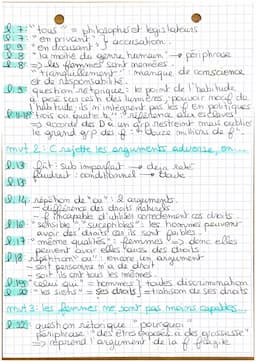 l.7: "tous" = philosophes et législateurs
l.7: "en privant" } accusation.
l.9 "en excusant"
l.8 "la moitié du genre humain" → périphrase
l.8 → les femmes sont niées.
"tranquillement": manque de conscience et de responsabilité.
l.9 question rétorique: le point de l'habitude
a pesé sur les h des lumières, pouvoir moral de
l'habitude, ils n'intègrent pas les f en politiques
l.11-12 "trois ou quatre h": référence aux
→ accorde des D à un grp restreint mais oublier
le grand grp des f: "douze millions de f".
mvt 2: C rejette les arguments adverse, en...
l.13 fût: sub imparfait → déjà raté
l.13 faudrait: conditionnel → doute
l.14: répétion de "ou": 2 arguments.
- différence des droits naturels
- f incapable d'utiliser correctement ces droits.
l.16 "sensible", "suceptibles": les hommes peuvent
avoir des droits car ils sont faibles.
l.17 "même qualités": femmes → donc elles
peuvent avoir elles aussi des droits
l.18 répétition "ou": encore un argument
- soit personne n'a de droit
- soit ils ont tous les mêmes.
l.19 "celui qui" = hommes } toutes discrimination
l.20 "les siens" = ses droits } = trahison de ses droits
mvt 3: les femmes ne sont pas moins capables...
l.22 question rétorique "pourquoi"
périphrase: "des êtres exposés à des grossesse"
→ reprend l'argument de la f fragile